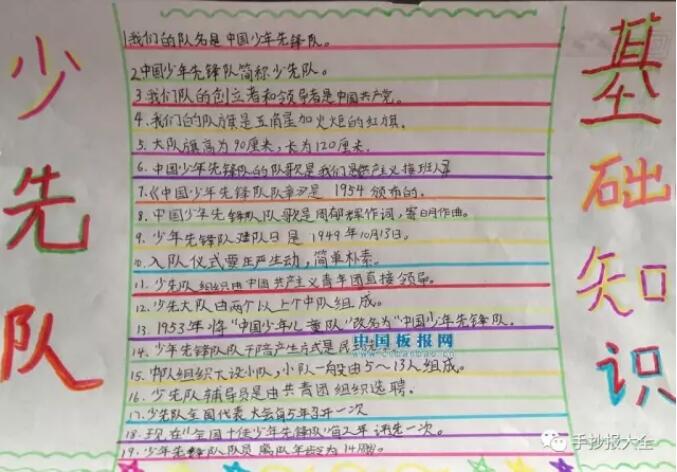 少先队
基础知识
1我们的队名是中国少年先锋队。
2.中国少年先锋队简称少先队。
3.我们队的创立者和领导者是中国共产党。
4.我们的队旗是五角星加火炬的红旗。
5.大队旗高为90厘米,长为120厘米.
6.中国少年先锋队的队歌是我们是共产主义接班人
7.《中国少年先锋队队章》是1954颁布的.
8.中国少年先锋队队歌是周郁辉作词,寄明作曲。
9.少年先锋队建队日是1949年10月13日。
10.入队仪式要庄严生动,简单朴素。
11.少先队组织由中国共产主义青年团直接领导。
12.少先大队由两个以上个中队组成。
13.1953年将“中国少年儿童队”改名为“中国少年先锋队。
14.少年先锋队队干部产生方式是民主
15.中队组织下设小队,小队一般由5~13人组成。
16.少先队辅导员是由共青团组织选聘。
17.少先队全国代表大会每5年召开一次
18.现在“全国十佳少年先锋队”每2年评选一次。
19.少年先锋队队员离队年龄为14周岁。
中国板报网
手抄报大全